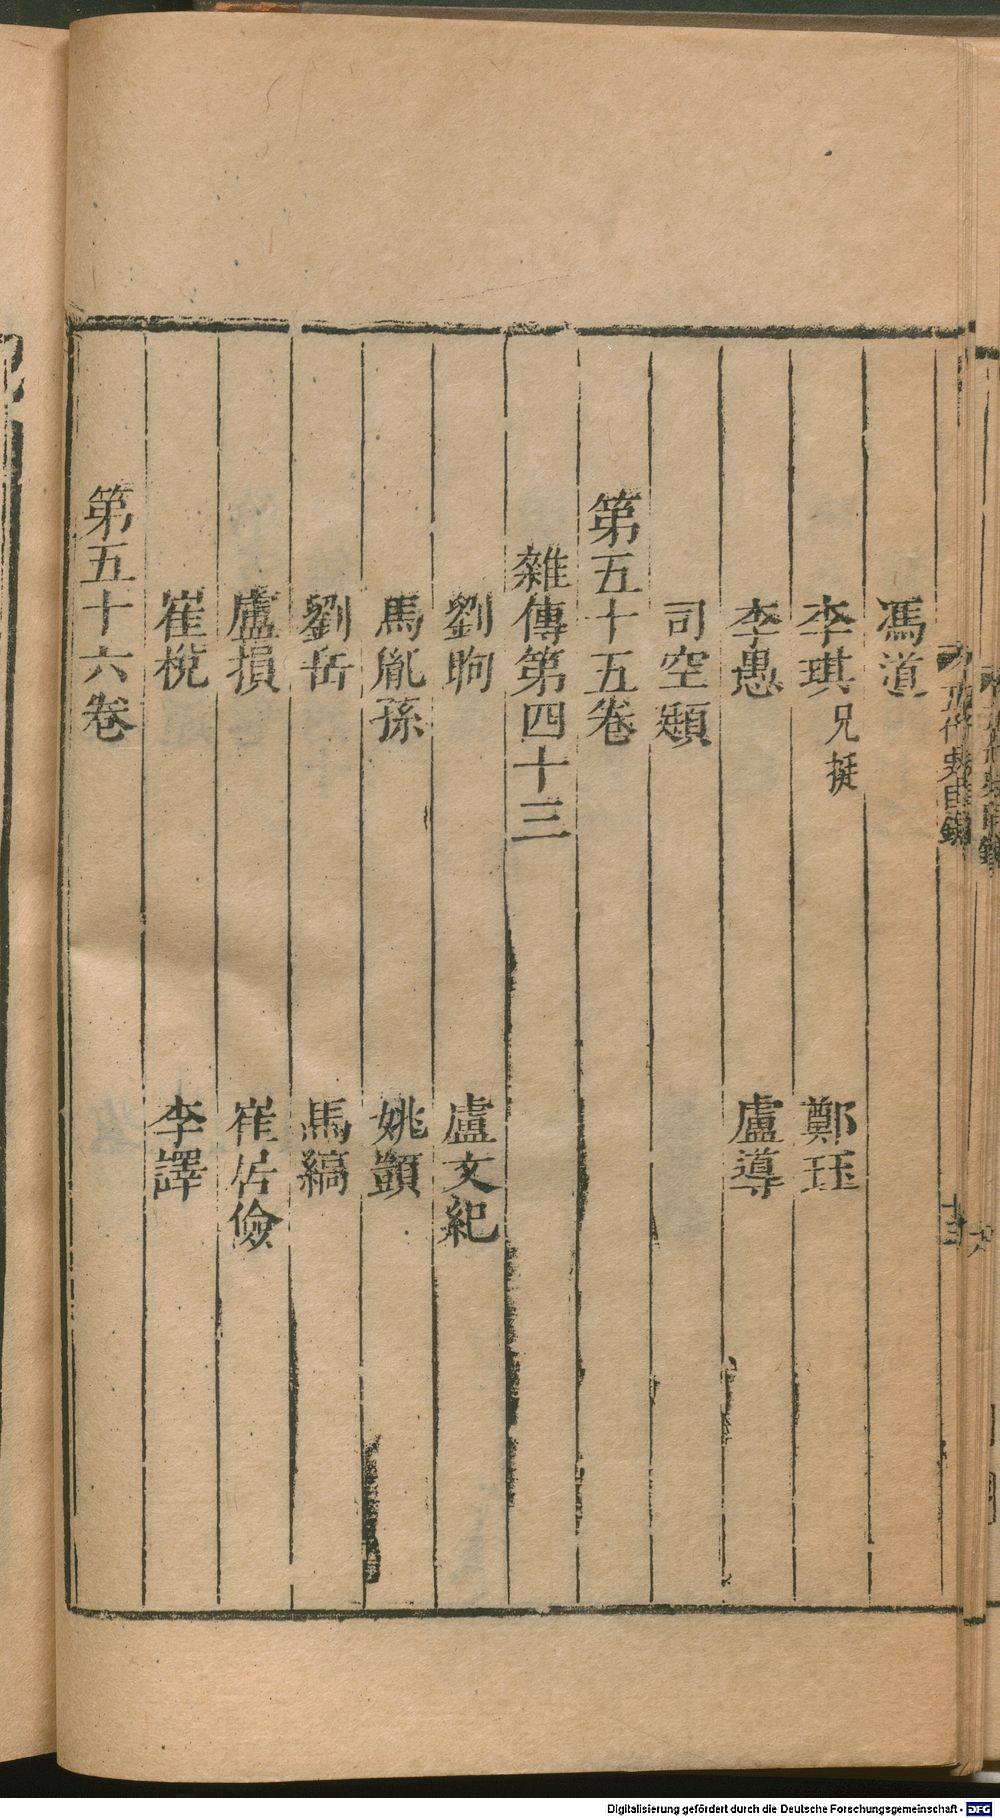 馮道
李琪 兄挺 鄭珏
李愚 盧導
司空頲
第五十五卷
雜傳第四十三
劉昫 盧文紀
馬胤孫 姚顗
劉岳 馬縞
盧損 崔居儉
崔梲 李譯
第五十六卷
五代史目錄
Digitalisierung gefördert durch die Deutsche Forschungsgemeinschaft - DFG